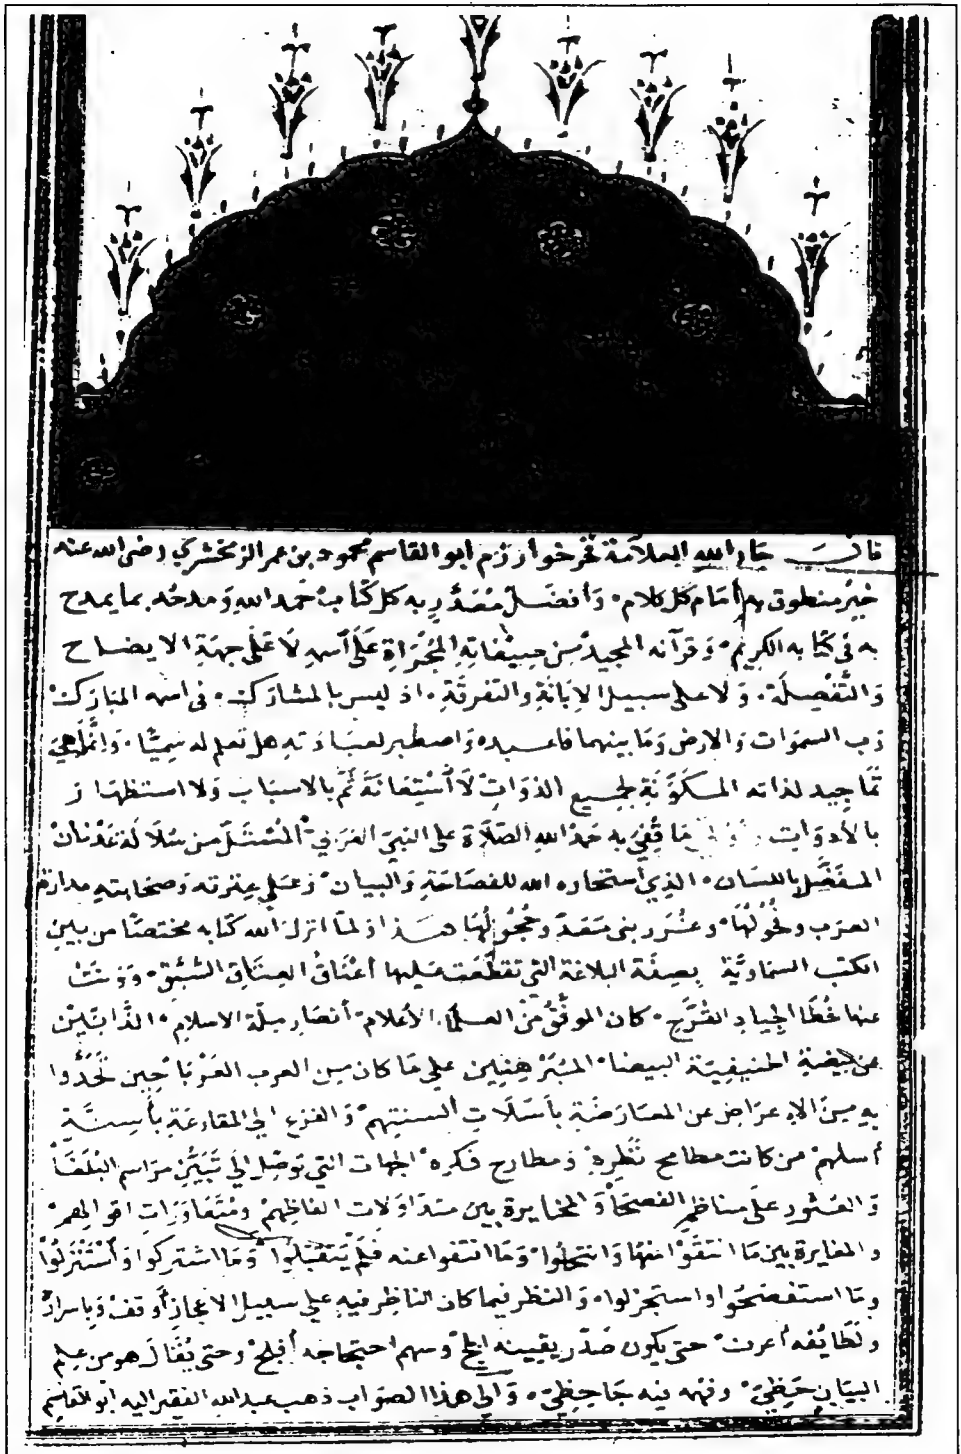 قال جار الله العلامة فخر خوارزم ابو القاسم محمود بن عمر الزمخشري رضى الله عنه
خير منطوق به أمام كل كلام وأفضل مصدر به كل كتاب حمد الله ومدحه بما يمدح
به في كتابه الكريم وقرآنه المجيد من صفاته المجراة على اسمه لا على جهة الايضاح
والتفصلة ولا على سبيل الابانة والتفرقة اذ ليس بالمشارك في اسمه المبارك
رب السموات والارض وما بينهما فاعبده واصطبر لعبادته هل تعلم له سميا وانما هي
تماجيد لذاته المكونة لجميع الذوات لا استعانة ثم بالاسباب ولا استظهار
بالأدوات ما قفي به حمد الله الصلاة على النبي العربي المستل من سلالة عدنان
المفضل باللسان الذي استخاره الله للفصاحة والبيان وعلى عترته وصحابته مدارة
العرب وفحولها وغرر بني معد وحجولها هذا اذ لما انزل الله كتابه مختصا من بين
الكتب السماوية بصفة البلاغة التي تقطعت عليها أعناق العتاق السبق وونت
عنها خطا الجياد القرح كان الموفق من العلماء الأعلام أنصار ملة الاسلام الذابين
عن بيضة الحنيفية البيضا المبرهنين على ما كان من العرب العربا حين تحدوا
به من الاعراض عن المعارضة بأسلات ألسنتهم والفزع الى المقارعة بأسنة
أسلهم من كانت مطامح نظره ومطارح فكره الجهات التي توصل الى تبين مراسم البلغا
والعثور على مناظم الفصحا والمخايرة بين متداولات الفاظهم ومتعاورات اقوالهم
والمغايرة بين ما انتقوا منها وانتخلوا وما انتفوا عنه فلم يتقبلوا وما اشتركوا واستنزلوا
وما استفصحوا واستجزلوا والنظر فيما كان الناظر فيه على سبيل الاعجاز أوقف وباسراره
ولطائفه أعرف حتى يكون صدر يقينه اثلج وسهم احتجاجه أفلج وحتى يقال هو من علم
البيان حظي وفهمه فيه جاحظي والى هذا الصواب ذهب عبد الله الفقير اليه ابو القاسم